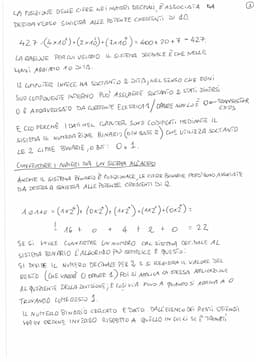 LA POSIZIONE DELLE CIFRE NEI NUMERI DECIMALI È ASSOCIATA DA
DESTRA VERSO SINISTRA ALLE POTENZE CRESCENTI DI 10.
427 = (4×10²)+(2×10¹)+(7×10⁰) = 400+20+7 = 427
LA RAGIONE PER CUI VALE IL SISTEMA DECIMALE È CHE NELLE
MANI ABBIAMO 10 DITA.
IL COMPUTER INVECE HA SOLTANTO 2 DITA, NEL SENSO CHE OGNI
SUO COMPONENTE INTERNO PUÒ ASSUMERE SOLTANTO 2 STATI DIVERSI
O È ATTRAVERSATO DA CORRENTE ELETTRICA 1 / OPPURE NON LO È 0
TRANSISTOR
E CIÒ PERCHÉ I DATI NEL COMPUTER SONO CODIFICATI MEDIANTE IL
SISTEMA DI NUMERAZIONE BINARIO (DI BASE 2) CHE UTILIZZA SOLTANTO
LE 2 CIFRE BINARIE, O BIT: 0, 1.
CONVERTIRE I NUMERI DA UN SISTEMA ALL'ALTRO
ANCHE IL SISTEMA BINARIO È POSIZIONALE, LE CIFRE BINARIE ASSOCIATE
DA DESTRA A SINISTRA ALLE POTENZE CRESCENTI DI 2.
10110 = (1×2⁴)+(0×2³)+(1×2²)+(1×2¹)+(0×2⁰) =
16 + 0 + 4 + 2 + 0 = 22
SE SI VUOLE CONVERTIRE UN NUMERO DAL SISTEMA DECIMALE AL
SISTEMA BINARIO L'ALGORITMO PIÙ SEMPLICE È QUESTO:
SI DIVIDE IL NUMERO DECIMALE PER 2 E SI REGISTRA IL VALORE DEL
RESTO (CHE VARRÀ 0 OPPURE 1) POI SI APPLICA LA STESSA OPERAZIONE
AL QUOZIENTE DELLA DIVISIONE, E COSÌ VIA FINO A QUANDO SI ARRIVA A 0
IL NUMERO BINARIO CERCATO È DATO DALL'ELENCO DEI RESTI OTTENUTI
ORDINE INVERSO RISPETTO A QUELLO IN CUI SI È